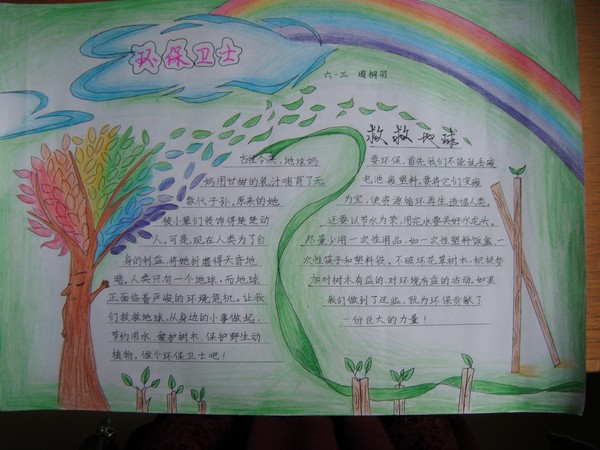 环保卫士
六·三 周桐羽
救救地球
古往今来,地球妈
妈用甘甜的乳汁哺育了无
数代子孙。原来的她
被小辈们装饰得楚楚动
人。可是,现在人类为了自
身的利益,将她折磨得天昏地
暗。人类只有一个地球,而地球
正面临着严峻的环境危机。让我
们救救地球,从身边的小事做起:
节约用水、爱护树木、保护野生动
植物,做个环保卫士吧!
要环保,首先我们不能就丢废
电池、废塑料,要将它们变废
为宝,使资源循环再生造福人类。
还要以节水为荣,用完水要关好水龙头。
尽量少用一次性用品,如一次性塑料饭盒、一
次性筷子和塑料袋。不破坏花草树木,积极参
加对树木有益的、对环境有益的活动。如果
我们做到了这些,就为环保贡献了
一份巨大的力量!